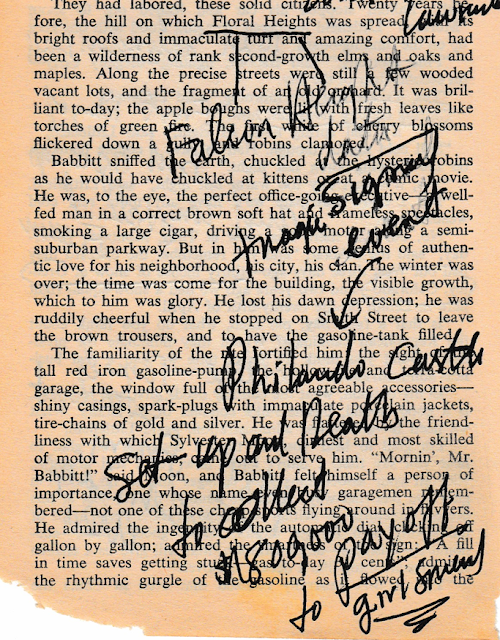 They had labored, these solid citizens. Twenty years be-
fore, the hill on which Floral Heights was spread, with its
bright roofs and immaculate turf and amazing comfort, had
been a wilderness of rank second-growth elms and oaks and
maples. Along the precise streets were still a few wooded
vacant lots, and the fragment of an old orchard. It was bril-
liant to-day; the apple boughs were lit with fresh leaves like
torches of green fire. The first white of cherry blossoms
flickered down a gully, and robins clamored.
Babbitt sniffed the earth, chuckled at the hysteric robins
as he would have chuckled at kittens or at a comic movie.
He was, to the eye, the perfect office-going executive—a well-
fed man in a correct brown soft hat and frameless spectacles,
smoking a large cigar, driving a good motor along a semi-
suburban parkway. But in him was some genius of authen-
tic love for his neighborhood, his city, his clan. The winter was
over; the time was come for the building, the visible growth,
which to him was glory. He lost his dawn depression; he was
ruddily cheerful when he stopped on Smith Street to leave
the brown trousers, and to have the gasoline-tank filled.
The familiarity of the rite fortified him: the sight of the
tall red iron gasoline-pump, the hollow-tile and terra-cotta
garage, the window full of the most agreeable accessories—
shiny casings, spark-plugs with immaculate porcelain jackets,
tire-chains of gold and silver. He was flattered by the friend-
liness with which Sylvester Moon, dirtiest and most skilled
of motor mechanics, came out to serve him. “Mornin’, Mr.
Babbitt!” said Moon, and Babbitt felt himself a person of
importance, one whose name even busy garagemen remem-
bered—not one of these cheap-sports flying around in flivvers.
He admired the ingenuity of the automatic dial, clicking off
gallon by gallon; admired the smartness of the sign: “A fill
in time saves getting stuck—gas to-day 31 cents”; admired
the rhythmic gurgle of the gasoline as it flowed into the
Falcon Heights
tragic signal
event
Philando Castile
set up and death
to collect
to pay off